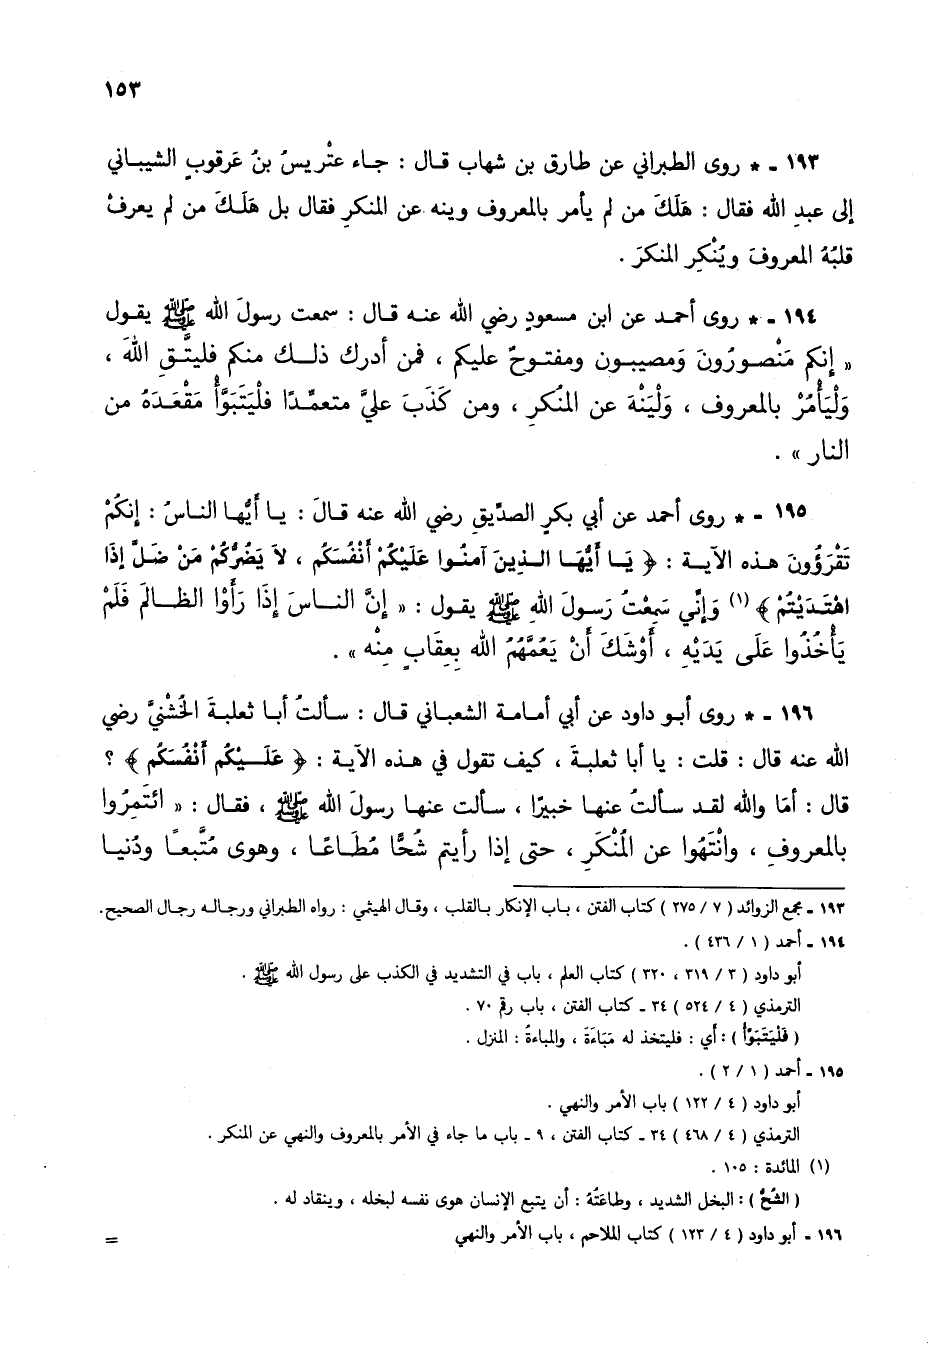 ١٥٣
١٩٣ - * روى الطبراني عن طارق بن شهاب قال : جاء عتْريسُ بنُ عَرقوبٍ الشيباني
إلى عبدِ الله فقال : هَلَكَ من لم يأمر بالمعروف وينه عن المنكرِ فقال بل هَلَكَ من لم يعرفْ
قلبُهُ المعروفَ ويُنْكِرِ المنكرَ .
١٩٤ - * روى أحمد عن ابن مسعودٍ رضي الله عنه قال : سمعت رسولَ الله ﷺ يقول
« إنكم مَنْصورُونَ وَمصيبون ومفتوحٌ عليكم ، فمن أدرك ذلك منكم فليتَّقِ اللهَ ،
وَلْيَأْمُرْ بالمعروف ، وَلْيَنْهَ عن المُنكرِ ، ومن كَذَبَ عليَّ متعمِّدًا فلْيَتَبَوَّأْ مَقْعَدَهُ من
النار » .
١٩٥ - * روى أحمد عن أبي بكرٍ الصدِّيقِ رضي الله عنه قالَ : يا أيُّها الناسُ : إنكُمْ
تَقْرَؤُونَ هذه الآية : ﴿ يَا أيُّهَا الذِينَ آمنُوا عَلَيْكُمْ أنْفُسَكُم ، لاَ يَضُرُّكُمْ مَنْ ضَلَّ إذَا
اهْتَدَيْتُمْ ﴾ (١) وَإنِّي سَمِعْتُ رَسولَ اللهِ ﷺ يقول : « إنَّ الناسَ إذَا رَأَوْا الظالمَ فَلَمْ
يَأْخُذُوا عَلَى يَدَيْهِ ، أَوْشَكَ أنْ يَعُمَّهُمُ الله بِعِقَابٍ مِنْه » .
١٩٦ - * روى أبو داود عن أبي أمامة الشعباني قال : سألتُ أبا ثعلبةَ الخُشْنيَّ رضي
الله عنه قال : قلت : يا أبا ثعلبةَ ، كيف تقول في هذه الآية : ﴿ عَلَيْكُم أنْفُسَكُم ﴾ ؟
قال : أمَا والله لقد سألتُ عنها خبيرًا ، سألت عنها رسولَ الله ﷺ ، فقال : « ائتَمِرُوا
بالمعروفِ ، وانْتَهُوا عن المُنْكَرِ ، حتى إذا رأيتم شُحًّا مُطَاعًا ، وهوى مُتَّبعاً ودُنيا
١٩٣ - مجمع الزوائد ( ٧ / ٢٧٥ ) كتاب الفتن ، باب الإنكار بالقلب ، وقال الهيثمي : رواه الطبراني ورجاله رجال الصحيح .
١٩٤ - أحمد ( ١ / ٤٣٦ ) .
أبو داود ( ٣ / ٣١٩ ، ٣٢٠ ) كتاب العلم ، باب في التشديد في الكذب على رسول الله ﷺ .
الترمذي ( ٤ / ٥٢٤ ) ٣٤ - كتاب الفتن ، باب رقم ٧٠ .
( فَلْيَتَبَوَّأْ ) : أي : فليتخذ له مَبَاءَةَ ، والمباءةُ : المنزل .
١٩٥ - أحمد ( ١ / ٢ ) .
أبو داود ( ٤ / ١٢٢ ) باب الأمر والنهي .
الترمذي ( ٤ / ٤٦٨ ) ٣٤ - كتاب الفتن ، ٩ - باب ما جاء في الأمر بالمعروف والنهي عن المنكر .
(١) المائدة : ١٠٥ .
( الشُّحُّ ) : البخل الشديد ، وطاعَتُهُ : أن يتبع الإنسان هوى نفسه لبخله ، وينقاد له .
١٩٦ - أبو داود ( ٤ / ١٢٣ ) كتاب الملاحم ، باب الأمر والنهي =